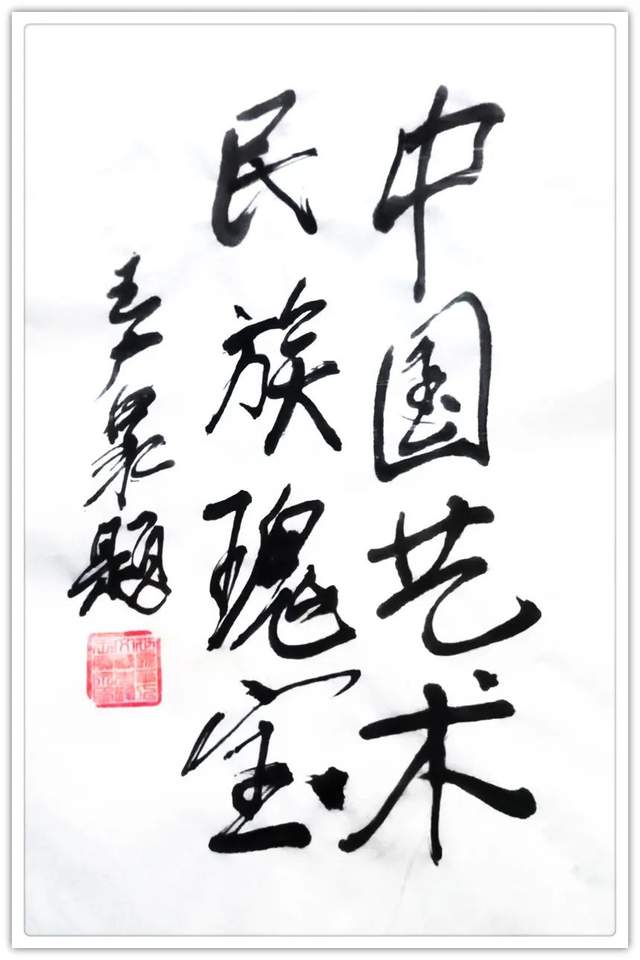 中国艺术
民族瑰宝
题